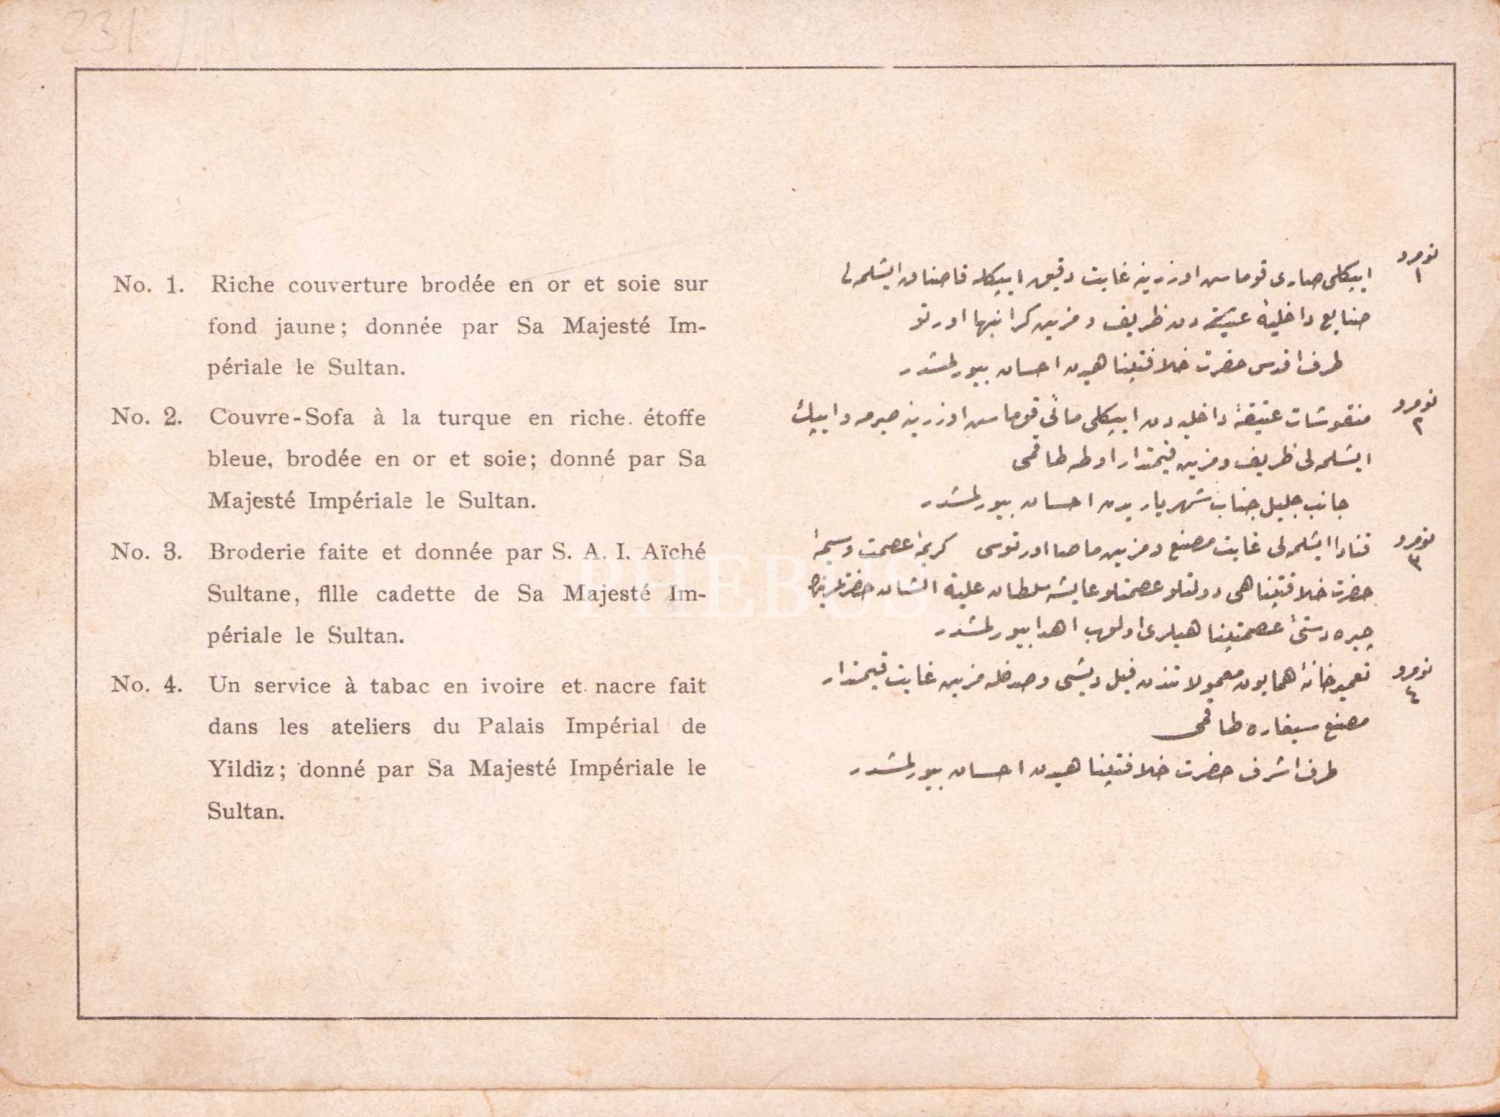 231
No. 1. Riche couverture brodée en or et soie sur
fond jaune; donnée par Sa Majesté Im-
périale le Sultan.
No. 2. Couvre-Sofa à la turque en riche. étoffe
bleue, brodée en or et soie; donné par Sa
Majesté Impériale le Sultan.
No. 3. Broderie faite et donnée par S. A. I. Aïché
Sultane, fille cadette de Sa Majesté Im-
périale le Sultan.
No. 4. Un service à tabac en ivoire et nacre fait
dans les ateliers du Palais Impérial de
Yildiz; donné par Sa Majesté Impériale le
Sultan.
نومرو ١ ايپكلى صارى قوماش اوزرينه غايت دقيق ايپكله ايشلمه لى
صنايع داخلیۀ عتيقه دن ظريف و مزين كرانبها اورتو
طرف اقدس حضرت خلافتپناهيدن احسان بيورلمشدر
نومرو ٢ منقوشات عتيقۀ داخليه دن ايپكلى مائى قوماش اوزرينه صيرمه و ايپك
ايشلمه لى ظريف و مزين قيمتدار اوطه طاقمى
جانب جليل جناب شهرياريدن احسان بيورلمشدر
نومرو ٣ ايشلمه لى غايت مصنع و مزين ماصا اورتوسى كريمۀ عصمت وسيمۀ
حضرت خلافتپناهى دولتلو عصمتلو عايشه سلطان علية الشان حضرتلرينك
چيره دستئ عصمتپناهيلرى اولوب اهدا بيورلمشدر
نومرو ٤ تعميرخانۀ همايون معمولاتندن فيل ديشى و صدفله مزين غايت قيمتدار
مصنع سيغاره طاقمى
طرف اشرف حضرت خلافتپناهيدن احسان بيورلمشدر
PHEBUS